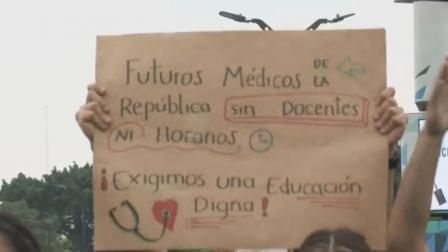 Futuros Médicos DE LA
República sin Docentes
NI Horarios
¡Exigimos una Educación
Digna!